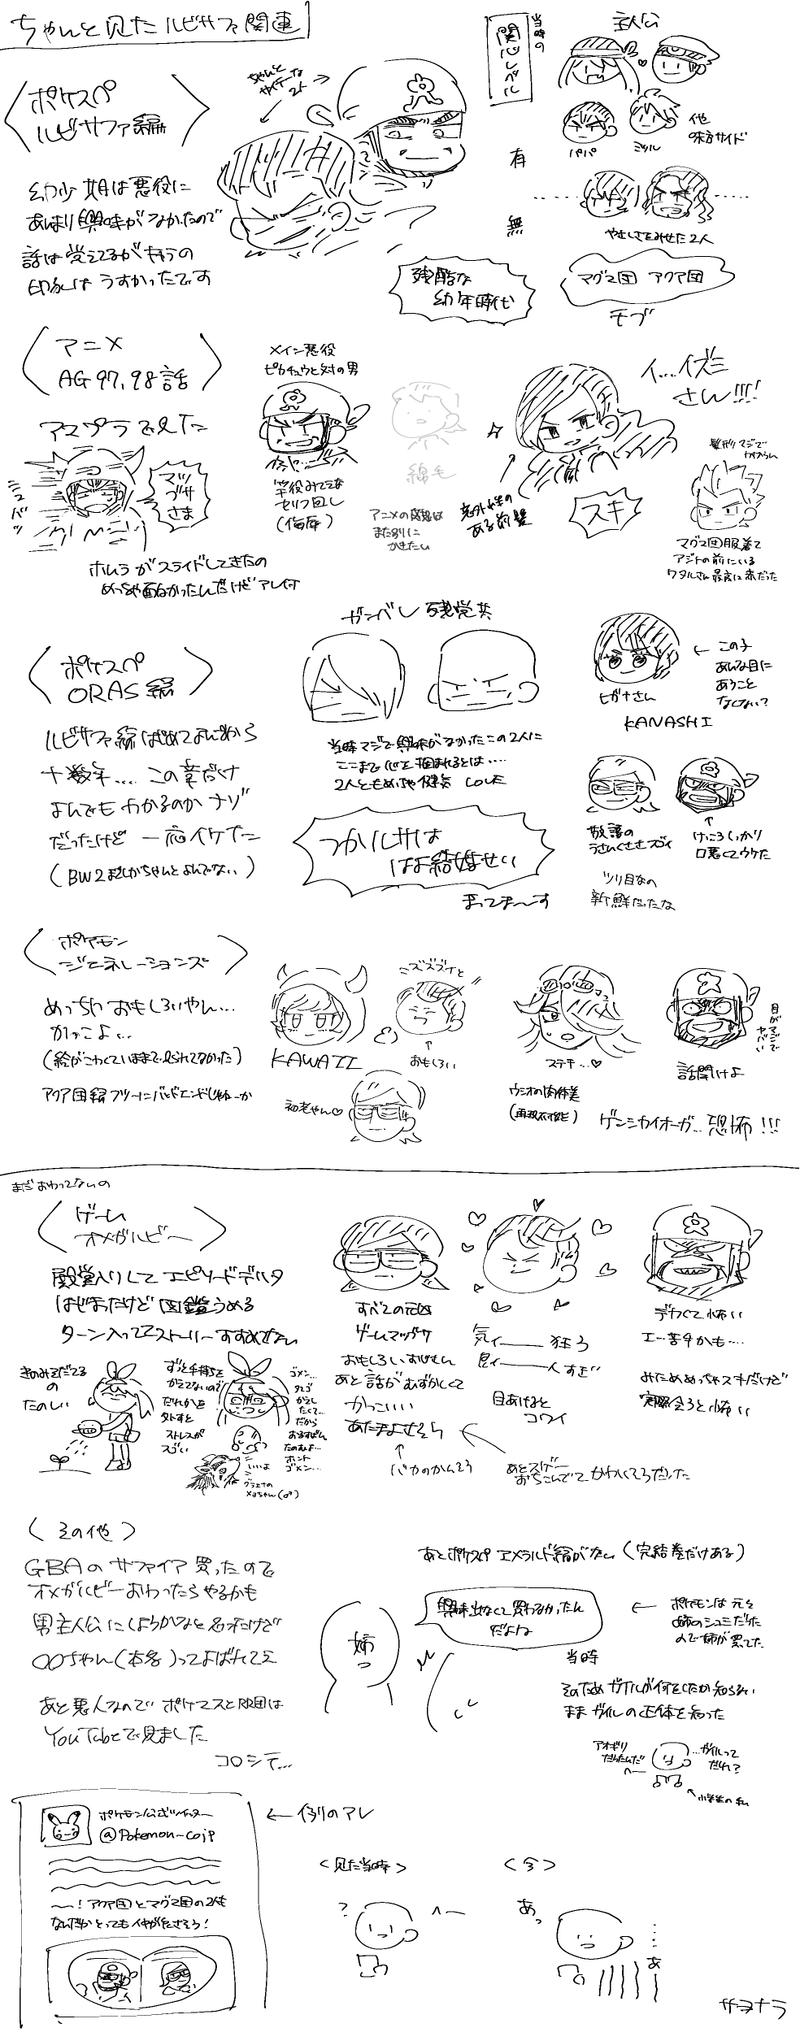 ちゃんと見たルビサファ関連
ポケスペ
ルビサファ編
幼少期は悪役に
あまり興味がなかったので
話は覚えてるがキャラの
印象はうすかったです
当時の
関心レベル
有
無
主人公
パパ
ミツル
他
味方サイド
やさしさをみせた2人
マグマ団 アクア団
モブ
残酷な
幼年時代
アニメ
AG97,98話
アマプラで見た
マツ
ブサ
さま
ホムラがスライドしてきたの
めっちゃ面白かったんだけどアレ何
メイン悪役
ピカチュウと対の男
(侮辱)
綿毛
アニメの感想は
また別に
かきたい
イ…イズミ
さん!!!
意外性の
ある前髪
スキ
髪形マジで
わからん
マグマ団服着て
アジトの前にいる
ワタルさん最高に赤だった
ポケスペ
ORAS編
ルビサファ編はじめてよんでから
十数年…この章だけ
よんでもわかるのかナゾ
だったけど 一応イケた
(BW2までしかちゃんとよんでない)
ガンバレ 残党共
当時マジで興味がなかったこの2人に
ここまで心を掴まれるとは…
2人ともめっちゃ健気 LOVE
つかルサは
はよ結婚せい
まってま〜す
ヒガナさん
この子
あんな目に
あうこと
なくない?
KANASHI
敬語の
うさんくささスゴイ
ツリ目なの
新鮮だったな
けっこうしっかり
口悪くてウケた
ポケモン
ジェネレーションズ
めっちゃおもしろいやん…
かっこよ…
(絵がこわくていままで見られてなかった)
アクア団編フツーにバッドエンドじゃねーか
KAWAII
ミズズズイと
おもしろい
初老やん♡
ステキ…♡
ウシオの肉体美
(再現不可能)
目がマジで
ヤバい
話聞けよ
ゲンシカイオーガ…恐怖!!!
まだおわってないの
ゲーム
オメガルビー
殿堂入りしてエピソードデルタ
はじまったけど図鑑うめる
ターン入っててストーリーすすめてない
きのみそだてる
の
たのしい
ずっと手持ちを
かえてないので
だれかを
外すと
ストレスが
スゴい
ゴメン…
いいよ
ホント
ゴメン…
グラエナの
すべての元凶
ゲームマツブサ
おもしろいおじさん
あと話がむずかしくて
かっこいい
あたまよせそう
バカのかんそう
気ィ――狂う
目あけると
コワイ
あとスゲー
おちこんでてかわいそうだった
デカくて怖い
エ…苦手かも…
みためめっちゃスキだけど
実際会うと怖い
その他
GBAのサファイア買ったので
オメガルビーおわったらやるかも
男主人公にしようかなと思ったけど
〇〇ちゃん(本名)ってよばれてええ
あと悪人なので ポケマスとR団は
YouTubeで見ました
コロシテ…
あとポケスペ エメラルド編がない(完結巻だけある)
姉
興味出なくて買わなかったん
だよね
ポケモンは元々
姉のシュミだった
ので姉が買ってた
当時
そのためガイルが何をしたか知らない
ままガイルの正体を知った
アオギリ
だったんだ
へ〜
…ガイルって
だれ?
小学生の私
ポケモン公式ツイッター
@Pokemon_cojp
〜!アクア団とマグマ団の2人も
なんだかとっても仲がよさそう!
例のアレ
<見た当時>
?
へ〜
<今>
あっ
……あ
サヨナラ